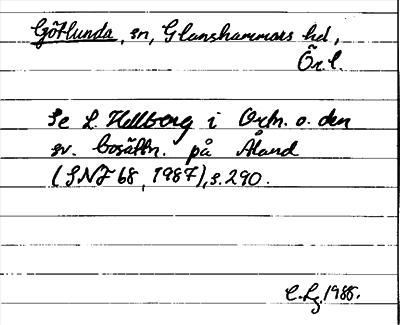 Götlunda, sn, Glanshammars hd,
Ör. l.
Se L Hellberg i Ortn. o. den
sv. bosättn. på Åland
(SNF 68, 1987), s. 290.
C. Lg. 1988.